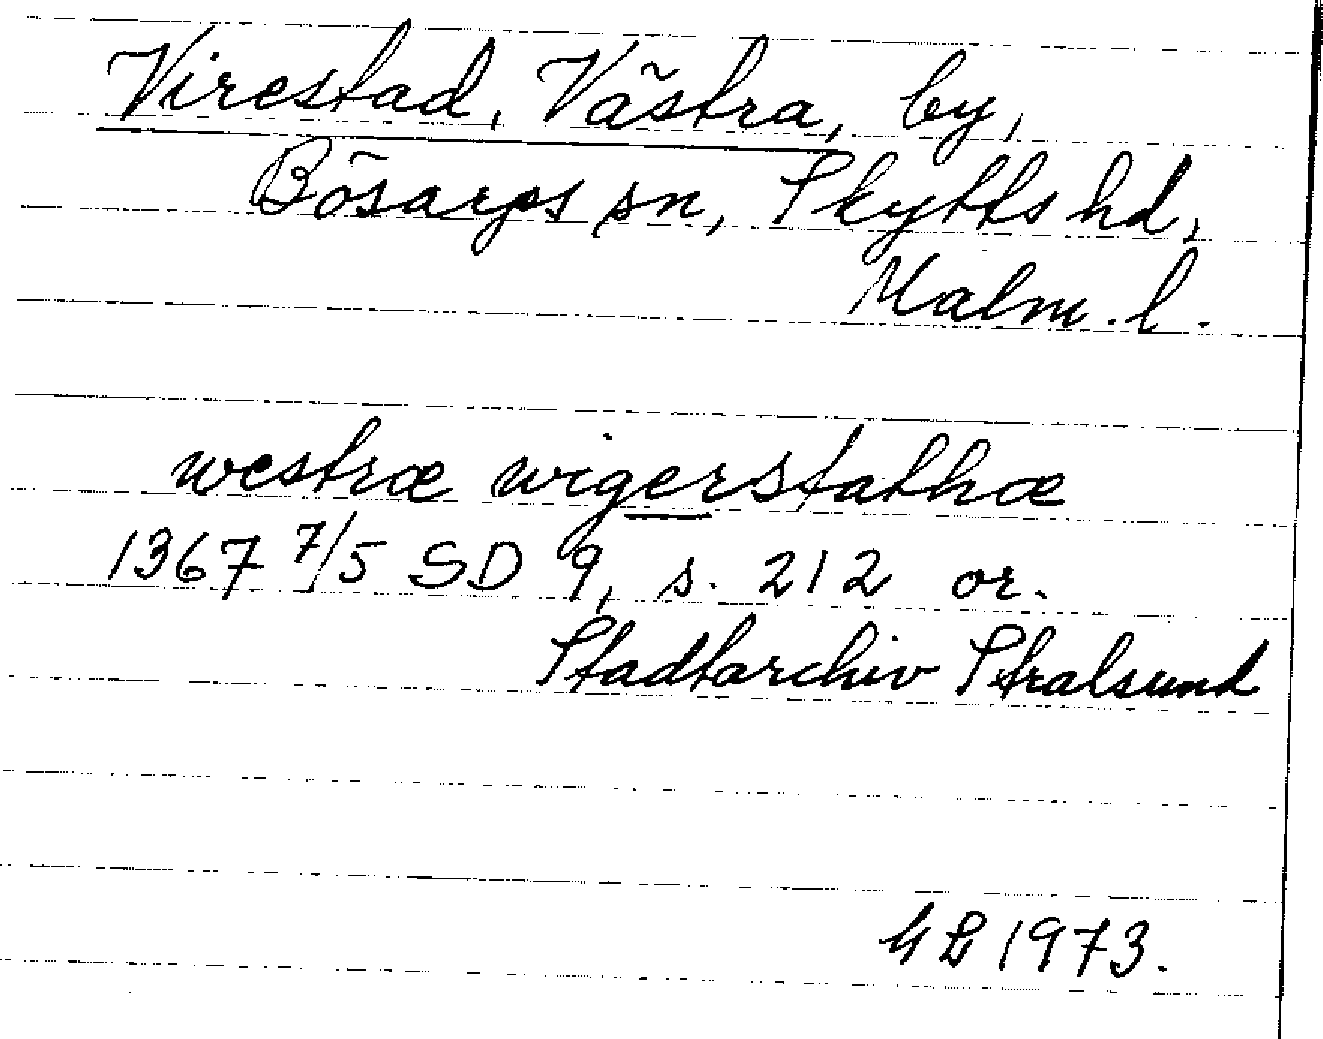 Virestad, Västra, by,
Bösarps sn, Skytts hd,
Malm. l.
westræ wigerstathæ
1367 7/5 SD 9, s. 212 or.
Stadtarchiv Stralsund
1973.